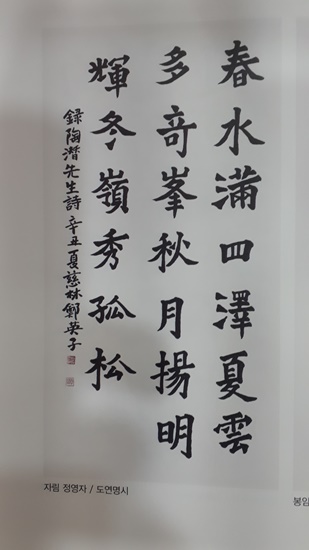 春水滿四澤夏雲
多奇峯秋月揚明
輝冬嶺秀孤松
錄陶潛先生詩 辛丑夏 慈林 鄭英子
자림 정영자 / 도연명시
봉임